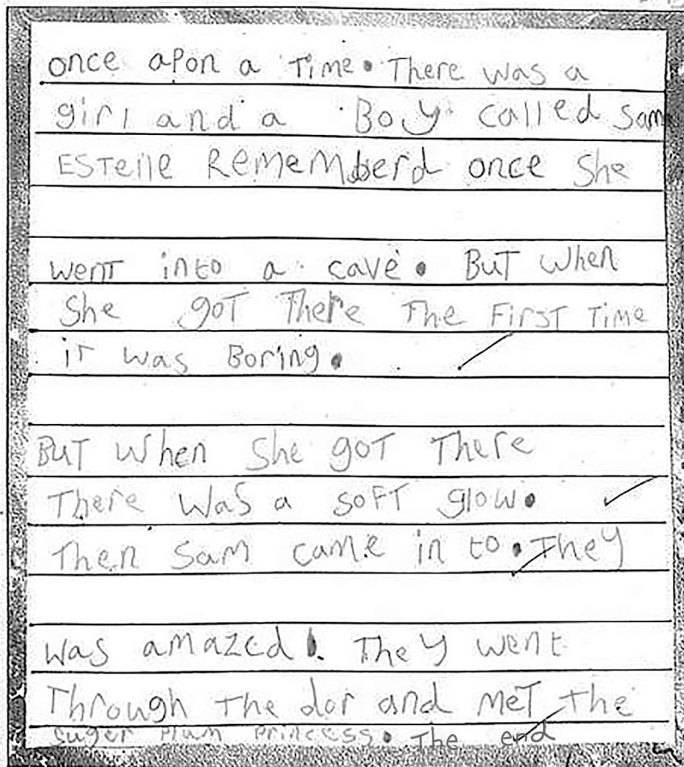 once apon a Time. There was a
girl and a Boy called Sam
ESTelle RememBerd once She
went into a cave. BuT When
She goT There The FirST Time
iT was Boring.
BuT when She goT There
There WaS a soFT glow.
Then Sam came in to. They
was amazed!. They went
Through The dor and meT the
Suger Plum Princess. The end